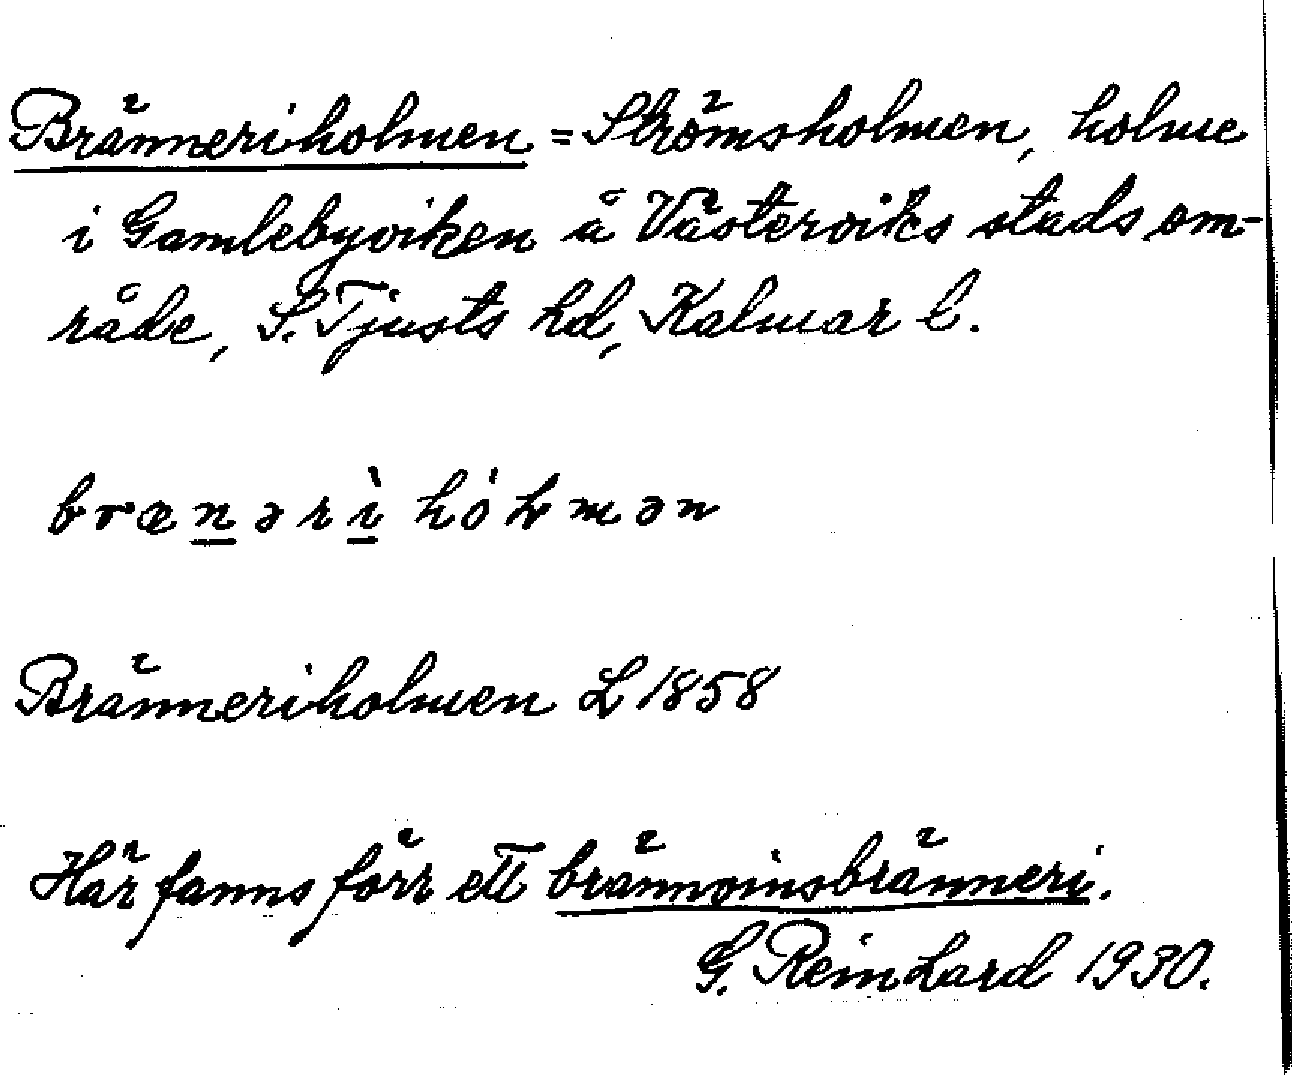 Bränneriholmen = Strömsholmen, holme
i Gamlebyviken å Västerviks stads om-
råde, S. Tjusts hd, Kalmar l.
brænərì hóɫmən
Bränneriholmen L 1858
Här fanns förr ett brännvinsbränneri.
G. Reinhard 1930.